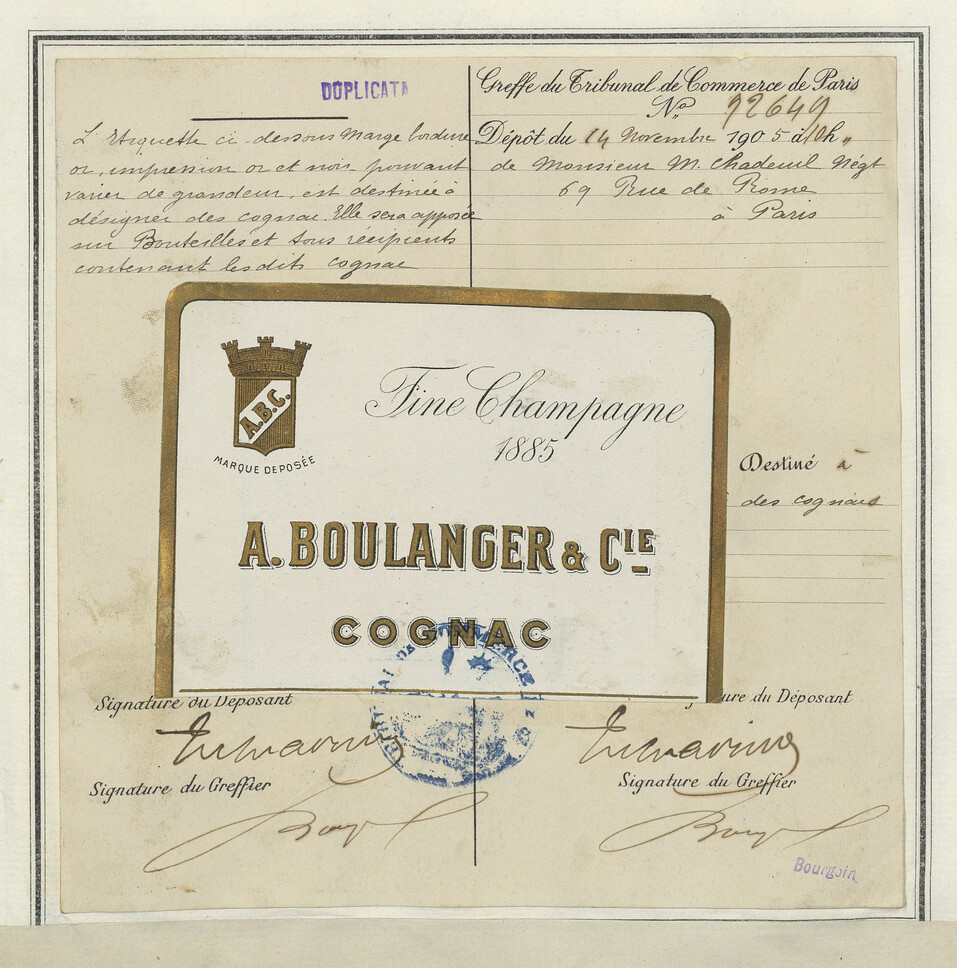 DUPLICATA
L'étiquette ci-dessous Marge bordure
or, impression or et noir pouvant
varier de grandeur, est destinée à
désigner des cognac. Elle sera apposée
sur Bouteilles et tous récipients
contenant lesdits cognac
Greffe du Tribunal de Commerce de Paris
N° 92649
Dépôt du 14 Novembre 1905 à 10h "
de Monsieur M. Chadeuil Négt
69 Rue de Rome
à Paris
A.B.C.
MARQUE DEPOSÉE
Fine Champagne
1885
A. BOULANGER & CIE
COGNAC
Destiné à
des cognacs
DE COMMERCE DE
Signature du Déposant
ure du Déposant
Signature du Greffier
Signature du Greffier
Bourgoin